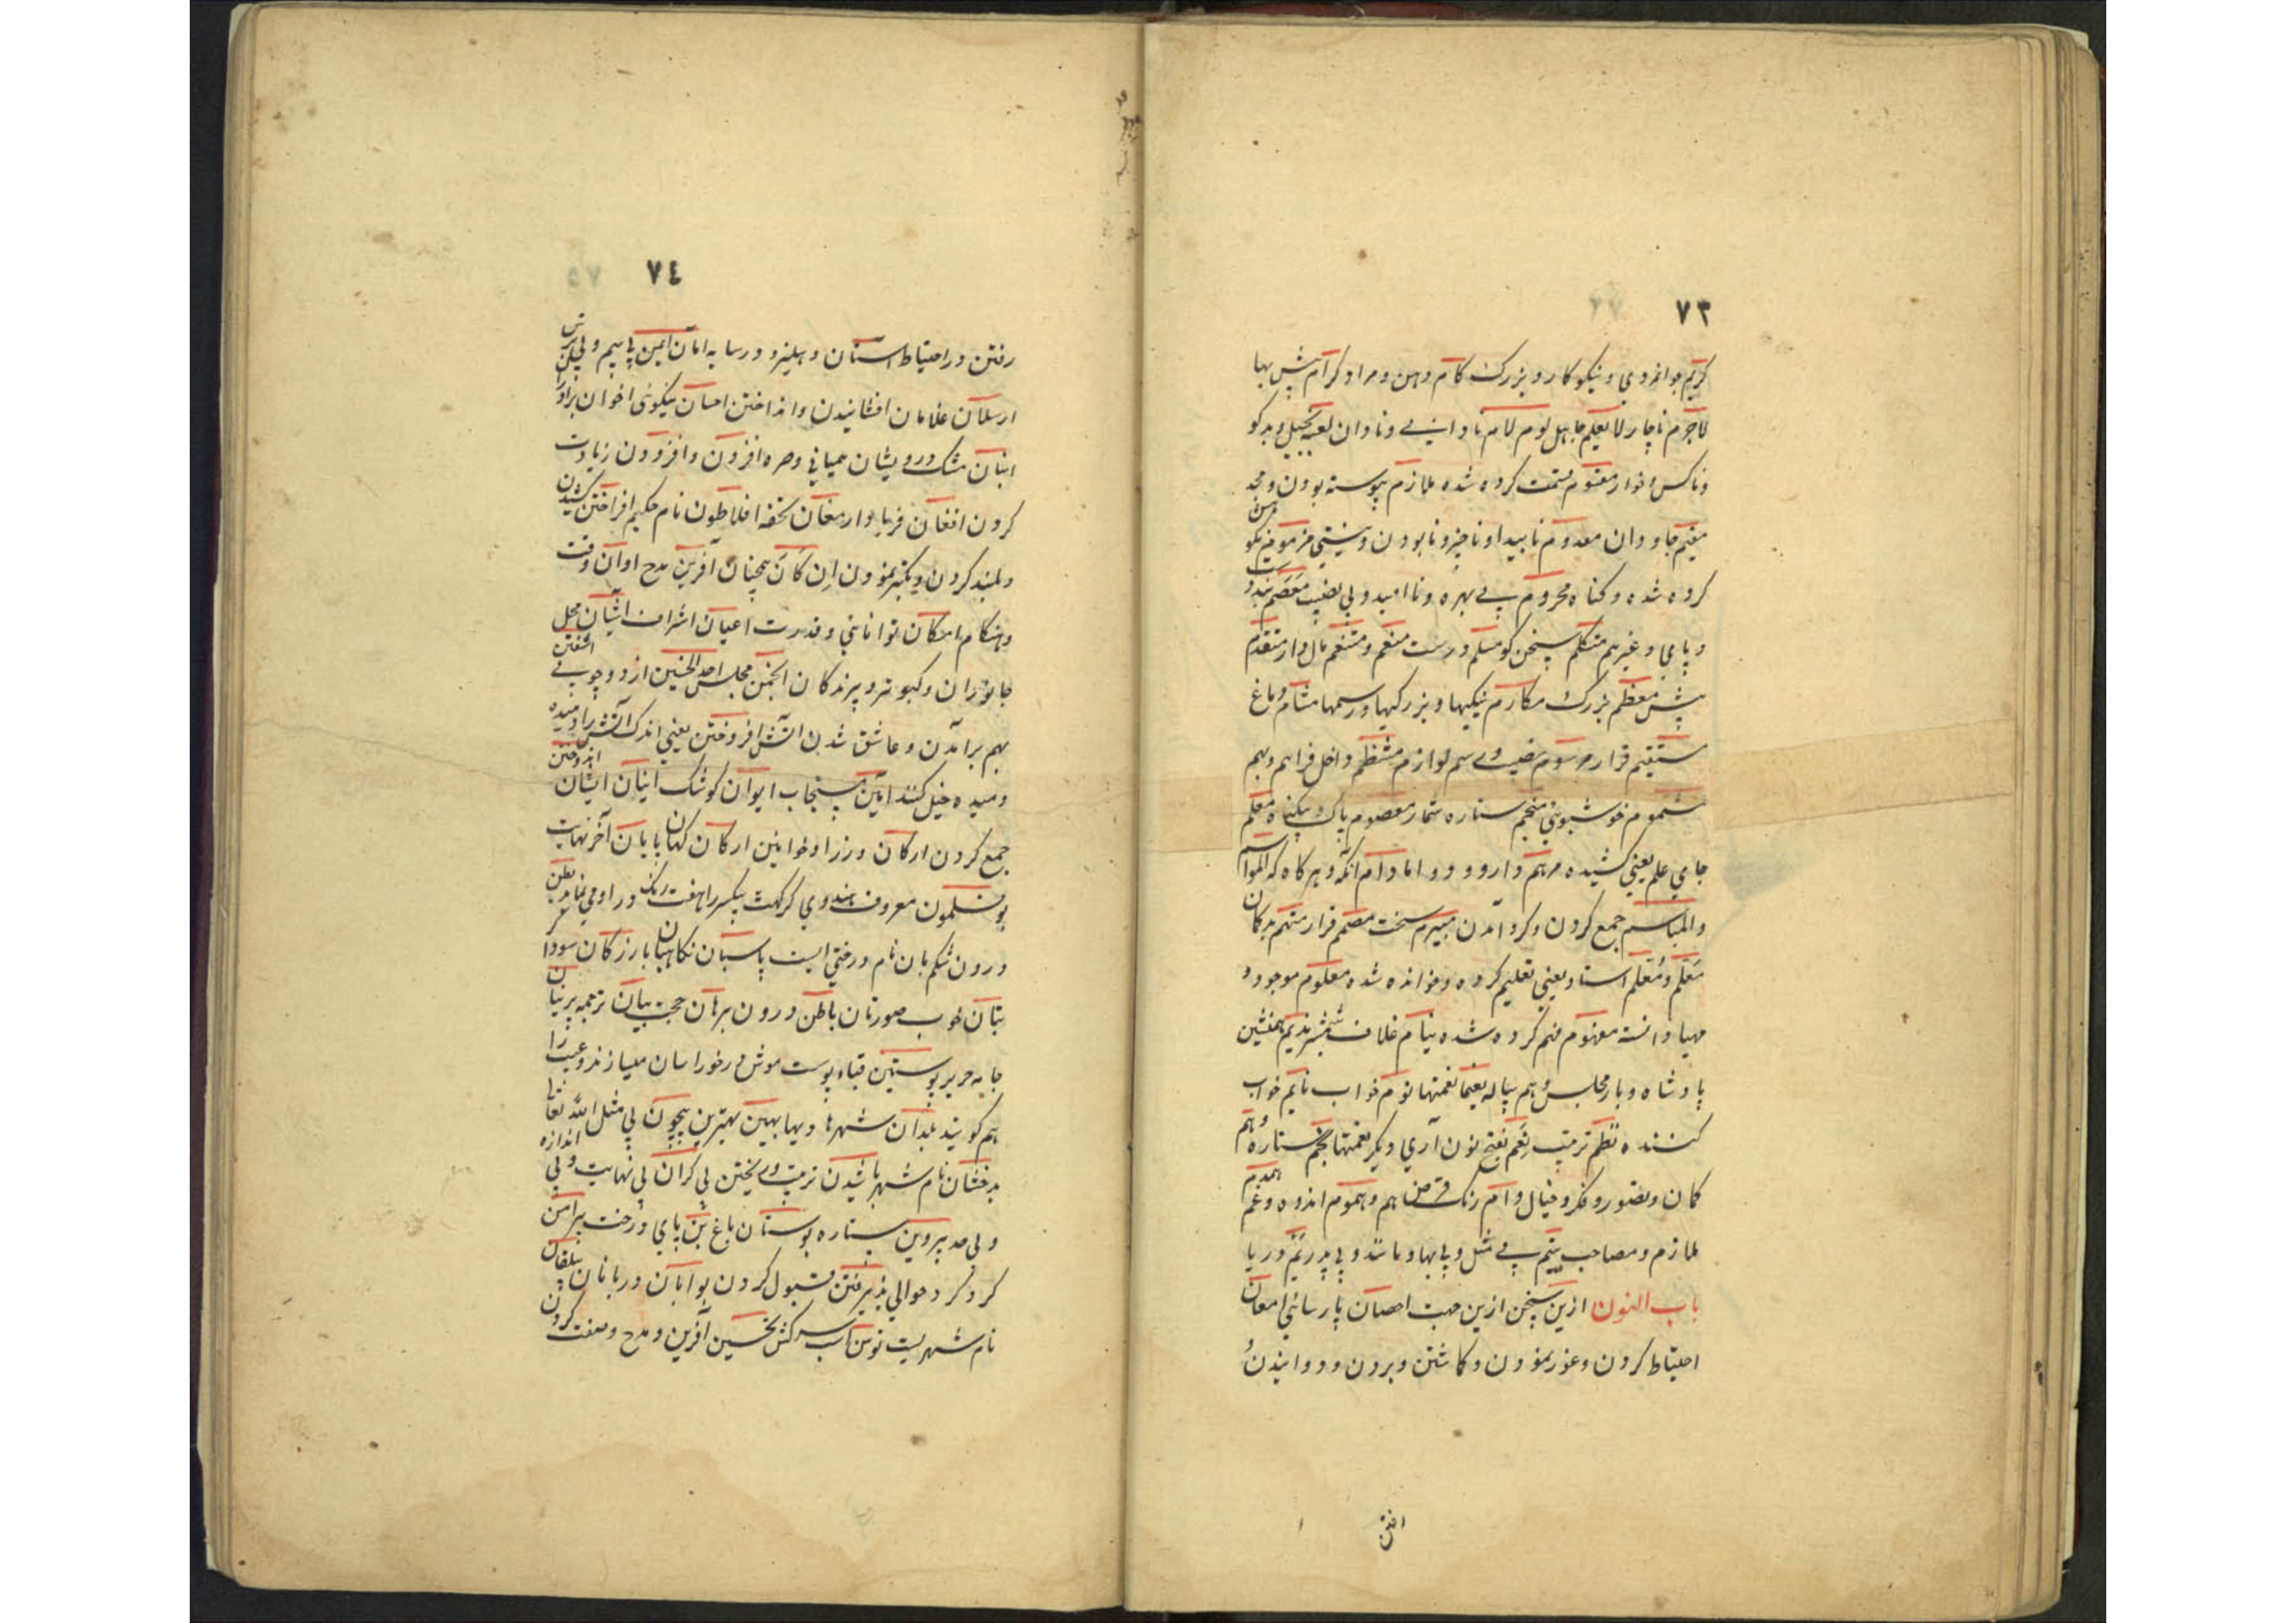 ٧٣
کریم جوانمردی و نیکوکار و بزرک کام دهن و مراد کرام بیش بها
لاجرم ناچار لا یعلم جاهل لوم لام نادانی و نادان لعیم بخیل و بدکو
و ناکس و خوار مقسوم قسمت کرده شده ملازم پیوسته بودن و
مقیم جاودان معدوم ناپیدا و ناچیز و نابودن و نیستی مذموم نکو
کرده شده و کناه محروم بی بهره و ناامید و بی نصیب معصم
و پای و غیرهم متکلم سخن کو مسلم درست منعم و متنعم مال دار متقدم
پیش معظم بزرک مکارم نیکیها و بزرکیها و رسمها مشام دماغ
مستقیم قرار مرسوم نصیب و رسم لوازم منتظم داخل فراهم و بهم
مشموم خوشبوئی منجم ستاره شمار معصوم پاک و بیکناه معلم
جای علم یعنی کشیده مرهم دارو و دوا مادام آنکه و هرکاه که
جمع کردن و کرد آمدن مبرم سخت مصمم قرار متهم بدکمان
مَعَلّم و مُعَلّم استاد یعنی تعلیم کرده و خوانده شده معلوم موجود و
مهیا دانسته مفهوم فهم کرده شده نیام غلاف شمشیر ندیم همنشین
پادشاه و یار مجلس و هم پیاله نعیم نعمتها نوم خواب نایم خواب
کننده نظم ترتیب نعم بفتح نون آری و دیکر نعمتها نجم ستاره وهم
کمان و تصور و فکر و خیال وام رنک قرض هم و هموم اندوه و غم همدم
ملازم و مصاحب یتیم بی مثل و بی بها و مانند و بی پدر یَمّ دریا
باب النون ازین سخن ازین جهت احصان پارسائی امعان
احتیاط کردن و غور نمودن و کاشتن و بردن و دوانیدن
٧٤
رفتن در احتیاط آستان دهلیز و در سایه امان ایمن بی بیم و بی
ارسلان غلامان افشانیدن و انداختن احسان نیکوئی اخوان
انبان مشک درویشان همیانی و صره افزون و افزودن زیادت
کردن افغان فریاد ارمغان تحفه افلاطون نام حکیم افراختن کشیدن
و بلند کردن و تکبر نمودن اِن کَانَ همچنان آفرین مدح اوان وقت
و هنکام امکان توانائی و قدرت اعیان اشراف آشیان محل
جانوران و کبوتر و پرندکان انجمن مجلس از دو چوب بی آشفتن
بهم برآمدن و عاشق شدن آتش افروختن یعنی اندک آتش را دمیده
و میده خیل کنند آمین مستجاب ایوان کوشک اینان ایشان اندوختن
جمع کردن ارکان وزرا و خوانین ارکان پایان آخر نهایت
بوقلمون معروف هندوی کرکت یکسر را هفت رنک در او می نماید بطن
درون شکم بان نام درختی است پاسبان نکاهبان بازرکان سوداکر
بتان خوب صورتان باطن درون برهان حجت بیان ترجمه پرنیان
جامه حریر پوستین قبا پوست موش در خراسان میسازند و عیب را
هم کویند بلدان شهرها و بیها بهین بهترین بیچون بی مثل الله تعالی
بدخشان نام شهر پاشیدن ترتیب و ریختن بی کران بی نهایت و بی اندازه
و بی حد پروین ستاره بوستان باغ بُن پای درخت پیرامن
کرد کرد و حوالی پذیرفتن قبول کردن بوابان دربانان بیلقان
نام شهریست توسن اسب سرکش تحسین آفرین و مدح و صفت کردن